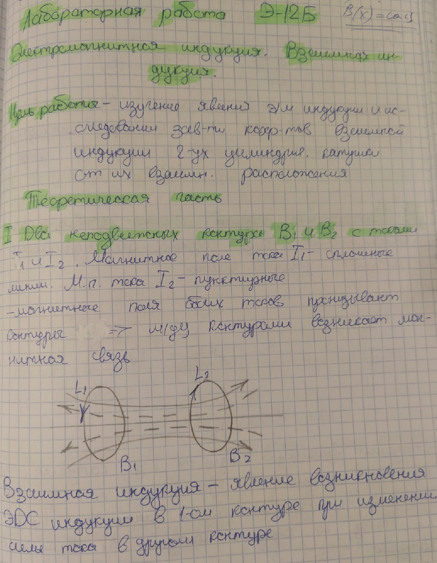 Лабораторная работа Э-12Б
B(x) = const
Электромагнитная индукция. Взаимная ин-
дукция.
Цель работы - изучение явления э/м индукции и ис-
следовании зав-ти коэф-тов взаимной
индукции 2-ух цилиндрич. катушек
от их взаимн. расположения
Теоретическая часть
I Два неподвижных контура B1 и B2 с токами
I1 и I2. Магнитное поле тока I1 - сплошные
линии. М.п. тока I2 - пунктирные
-магнитные поля обоих токов пронизывают
контуры => м/ду контурами возникает маг-
нитная связь
L1 L2
B1 B2
Взаимная индукция - явление возникновения
ЭДС индукции в 1-ом контуре при изменении
силы тока в другом контуре